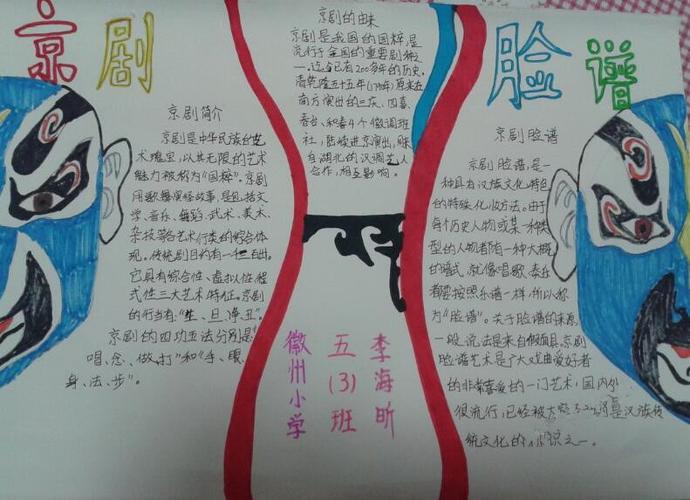 京剧
京剧简介
京剧是中华民族在艺
术瑰里，以其无限的艺术
魅力被称为“国粹”。京剧
用歌舞演绎故事，是包括文
学、音乐、舞蹈、武术、美术、
杂技等各艺术行类的综合体
现。传统剧目约有一千三百出。
它具有综合性、虚拟性、程
式性三大艺术特征。京剧
的行当有：“生、旦、净、丑”。
京剧的四功五法分别是“
唱、念、做、打”和“手、眼、
身、法、步”。
京剧的由来
京剧是我国的国粹，是
流行于全国的重要剧种之
一，迄今已有200多年的历史。
清乾隆五十五年(1790年)原来在
南方演出的三庆、四喜、
春台、和春4个徽调班
社，陆续进京演出，与来
自湖北的汉调艺人
合作，相互影响。
徽州小学
五(3)班
李海昕
脸谱
京剧脸谱
京剧脸谱，是一
种具有汉族文化特色
的特殊化妆方法。由于
每个历史人物或某一种类
型的人物都有一种大概
的谱式，就像唱歌、奏乐
都要按照乐谱一样，所以称
为“脸谱”。关于脸谱的来源，
一般说法是来自假面具。京剧
脸谱艺术是广大戏曲爱好者
的非常喜爱的一门艺术，国内外
很流行，已经被大家
汉族传
统文化的标识之一。